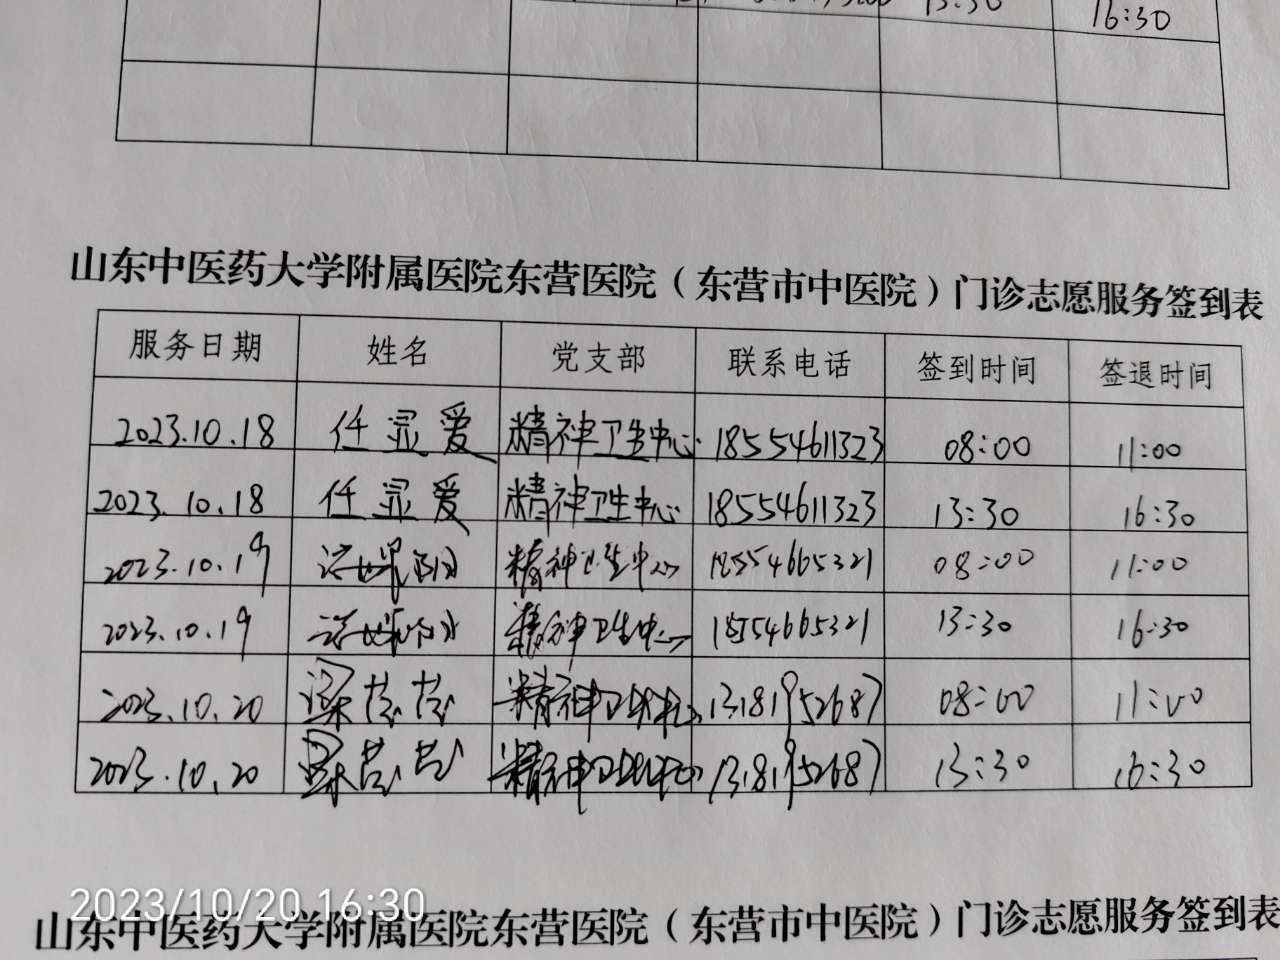 13:30 16:30
山东中医药大学附属医院东营医院（东营市中医院）门诊志愿服务签到表
服务日期 姓名 党支部 联系电话 签到时间 签退时间
2023.10.18 任显爱 精神卫生中心 18554611323 08:00 11:00
2023.10.18 任显爱 精神卫生中心 18554611323 13:30 16:30
2023.10.19 精神卫生中心 18554665321 08:00 11:00
2023.10.19 精神卫生中心 18554665321 13:30 16:30
2023.10.20 梁 精神卫生中心 08:00 11:00
2023.10.20 梁 精神卫生中心 13:30 16:30
2023/10/20 16:30
山东中医药大学附属医院东营医院（东营市中医院）门诊志愿服务签到表